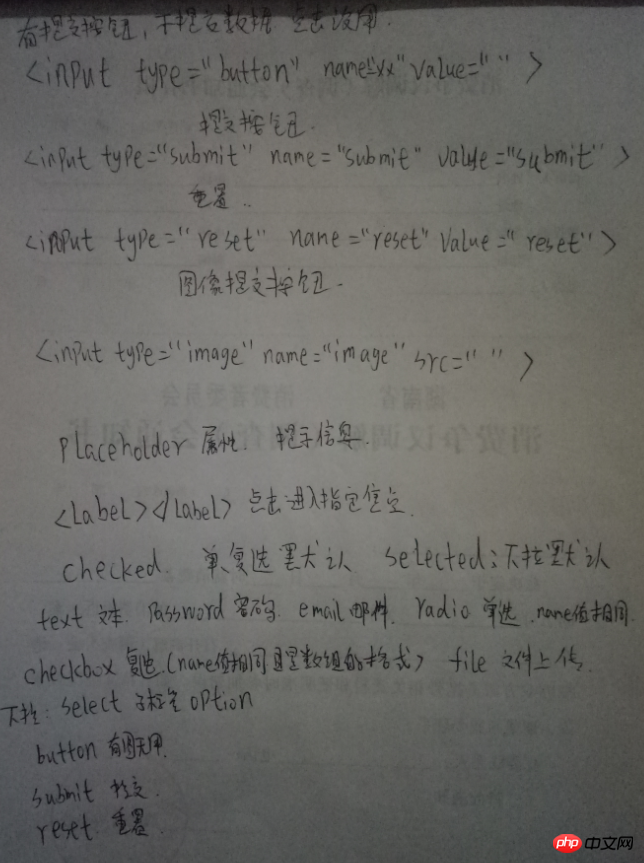 有提交按钮,不提交数据 点击没用.
<input type="button" name="xx" value=" ">
提交按钮.
<input type="submit" name="submit" value="submit">
重置..
<input type="reset" name="reset" value="reset">
图像提交按钮.
<input type="image" name="image" src=" ">
placeholder 属性. 提示信息.
<label></label> 点击进入指定位置.
checked. 单、复选默认 selected:下拉默认
text 文本. password 密码. email 邮件. radio 单选.name值相同.
checkbox 复选.(name值相同且是数组的格式) file 文件上传.
下拉: select 子标签 option
button 有图无用.
submit 提交.
reset. 重置.
php 中文网